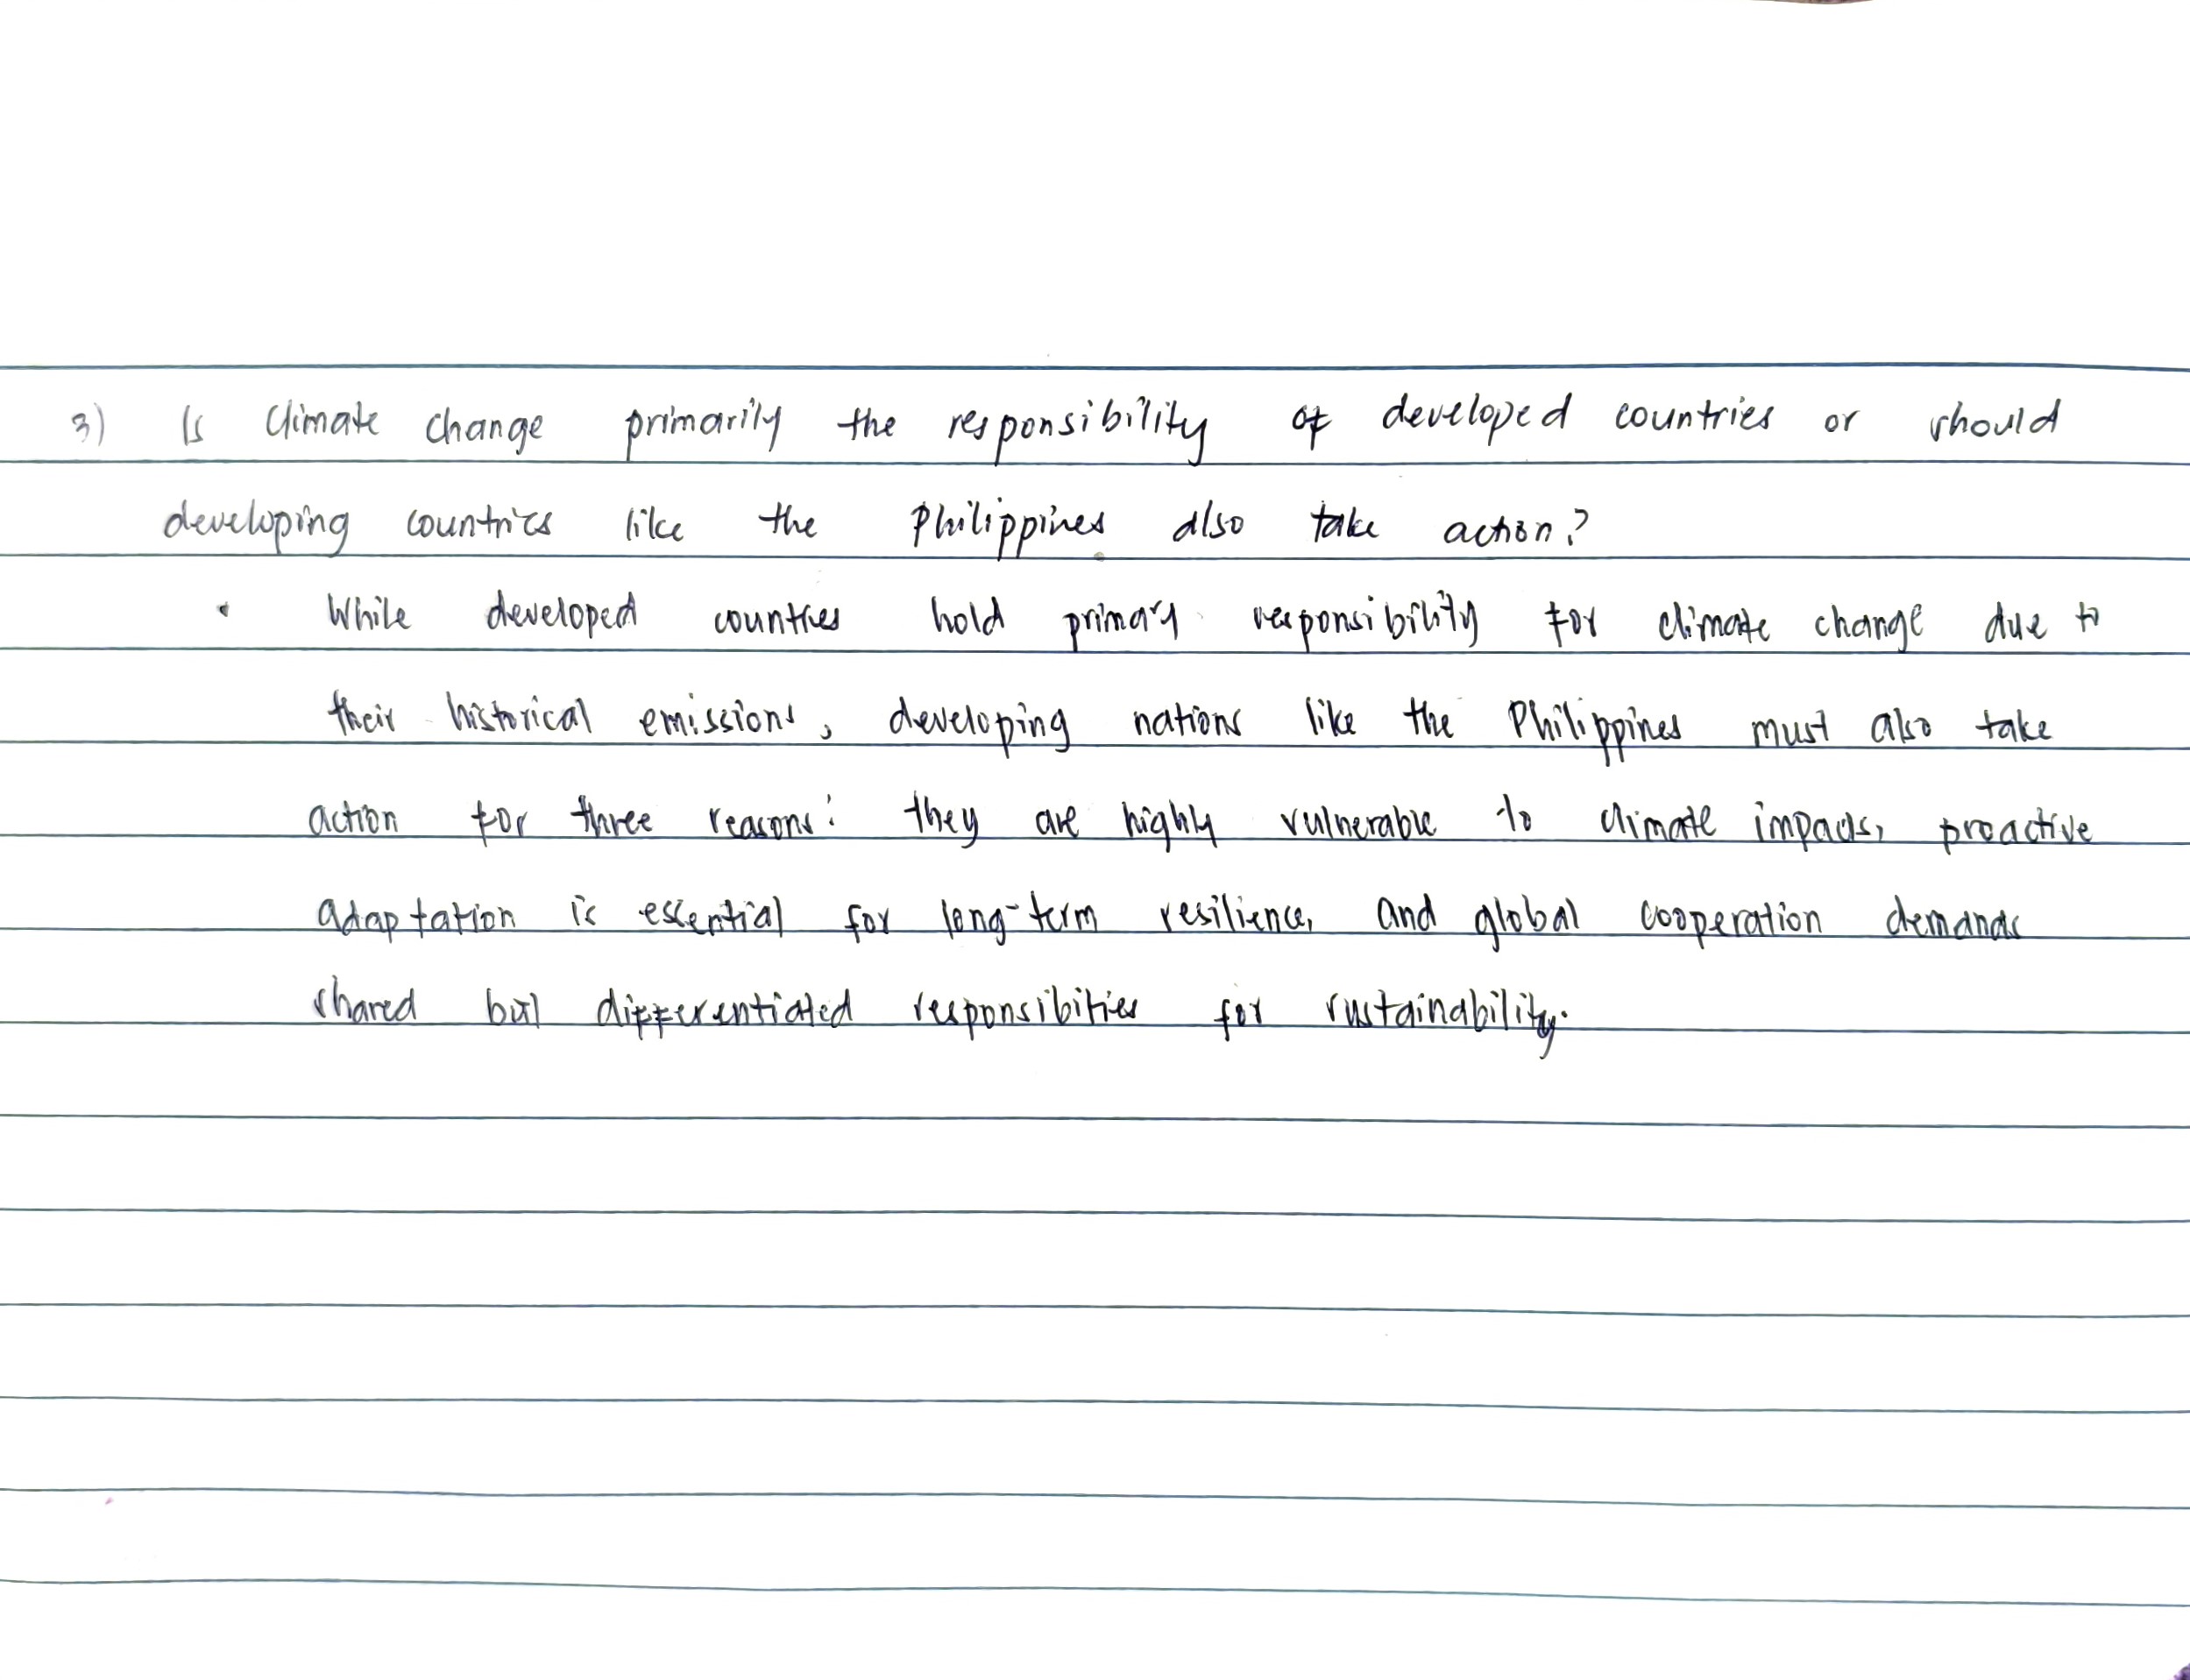 3) Is Climate change primarily the responsibility of developed countries or should
developing countries like the Philippines also take action?
• While developed countries hold primary responsibility for climate change due to
their historical emissions, developing nations like the Philippines must also take
action for three reasons: they are highly vulnerable to climate impacts, proactive
adaptation is essential for long-term resilience, and global cooperation demands
shared but differentiated responsibilities for sustainability.